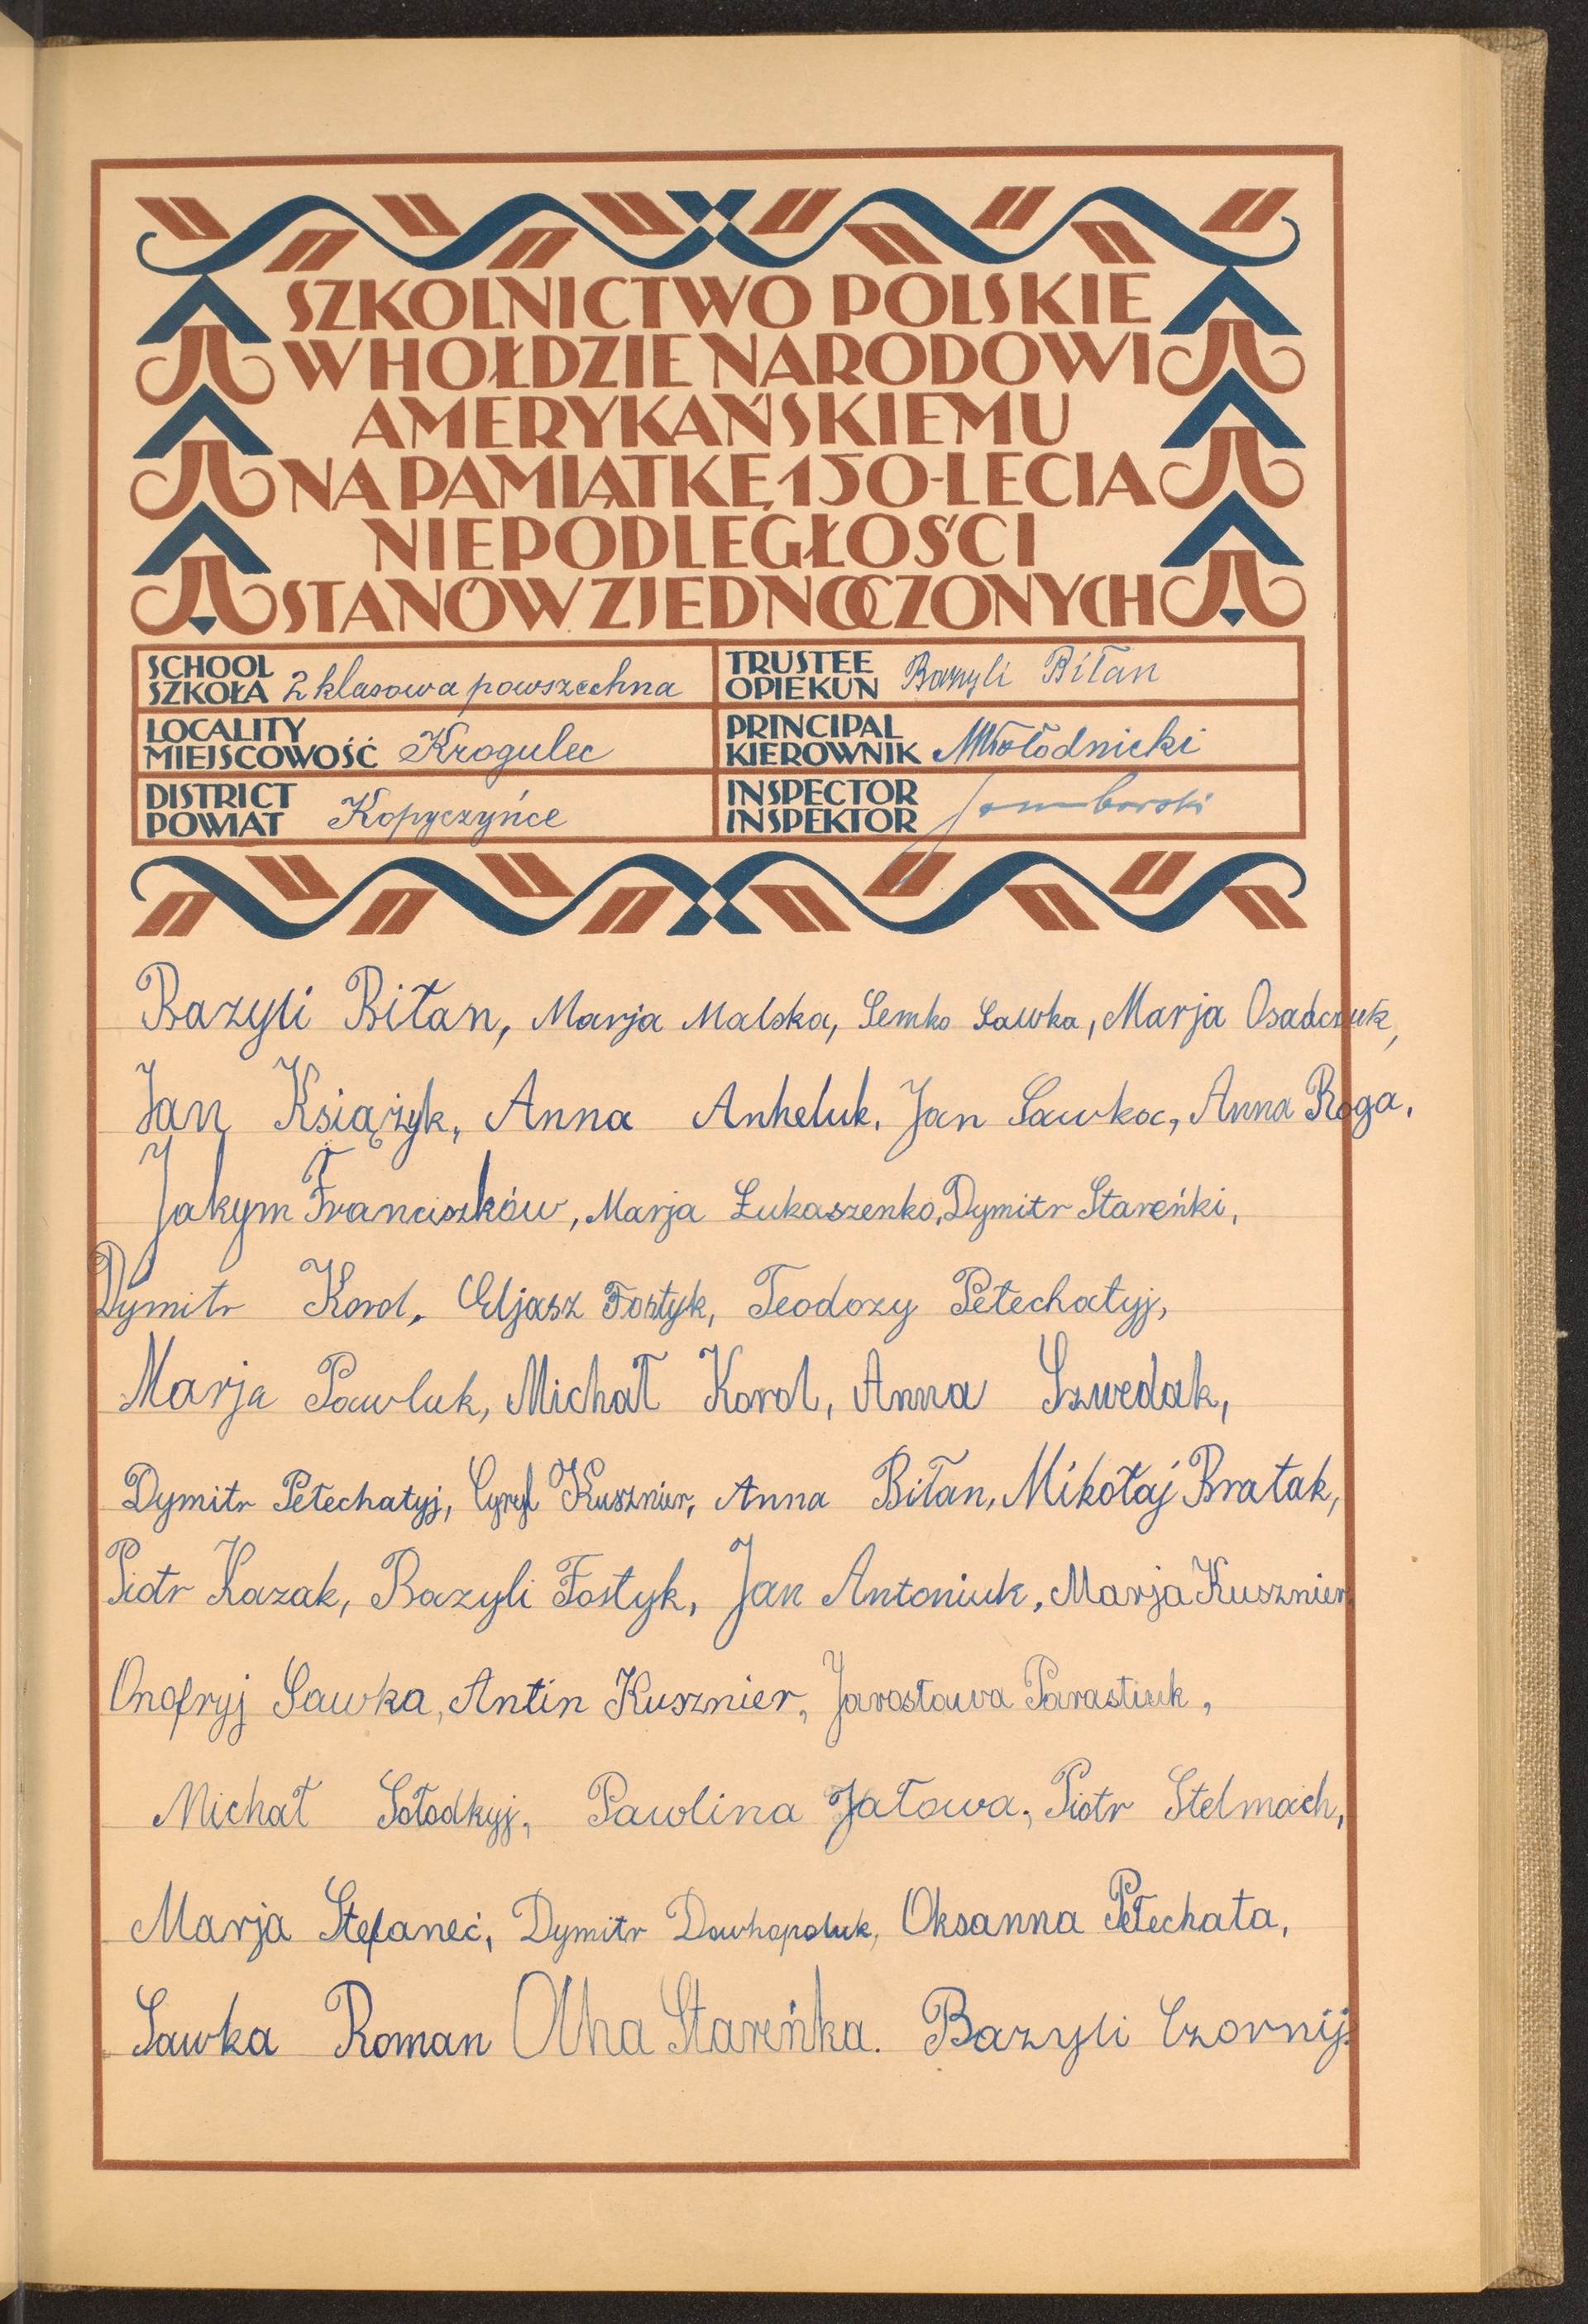 SZKOLNICTWO POLSKIE
W HOŁDZIE NARODOWI
AMERYKAŃSKIEMU
NA PAMIĄTKĘ 150-LECIA
NIEPODLEGŁOŚCI
STANÓW ZJEDNOCZONYCH
SCHOOL
SZKOŁA 2 klasowa powszechna
TRUSTEE
OPIEKUN Bazyli Biłan
LOCALITY
MIEJSCOWOŚĆ Krogulec
PRINCIPAL
KIEROWNIK
DISTRICT
POWIAT Kopyczyńce
INSPECTOR
INSPEKTOR
Bazyli Biłan, Marja Malska, Semko Sawka, Marja Osadczuk,
Jan Książyk, Anna Anheluk, Jan Sawka, Anna Roga,
Jakym Franciszków, Marja Łukaszenko, Dymitr Stareńki,
Dymitr Korol, Eljasz Fostyk, Teodozy Petechatyj,
Marja Pawluk, Michał Korol, Anna Szwedak,
Dymitr Petechatyj, Cyryl Kusznier, Anna Biłan, Mikołaj Bratak,
Piotr Kazak, Bazyli Fostyk, Jan Antoniuk, Marja Kusznier,
Onofryj Sawka, Antin Kusznier, Jarosława Parastiuk,
Michał Sołodkyj, Pawlina Jałowa, Piotr Stelmach,
Marja Stefaneć, Dymitr Dowhopoluk, Oksanna Petechata,
Sawka Roman Olha Stareńka. Bazyli Czornij.